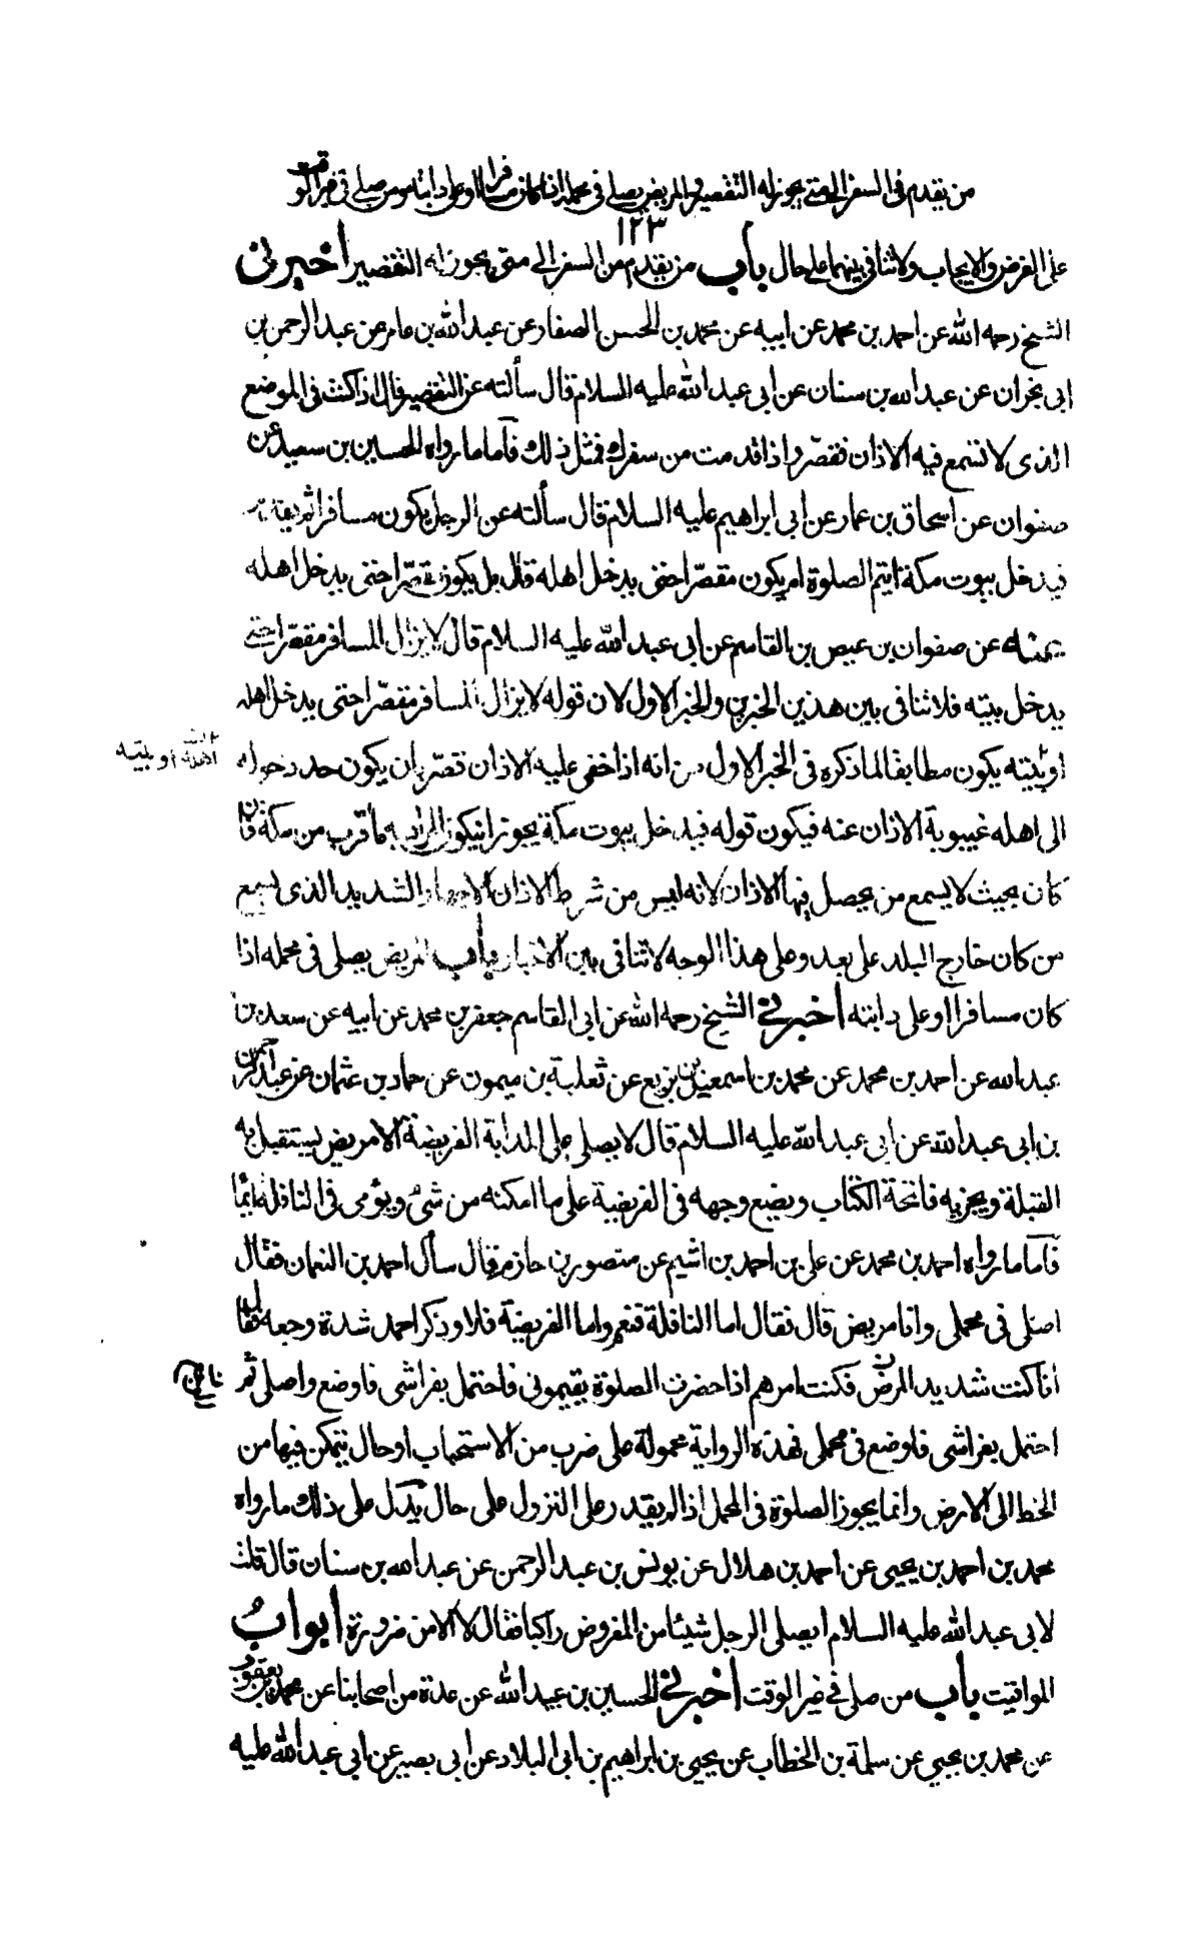 من يقدم فى السفر الى متى يجوز له التقصير والمريض يصلى فى محمله اذا كان مسافرا او على دابته ومن صلى فى غير الوقت
١٢٣
على الفرض والايجاب ولا تنافى بينهما على حال باب من يقدم من السفر الى متى يجوز له التقصير اخبرنى
الشيخ رحمه الله عن احمد بن محمد عن ابيه عن محمد بن الحسن الصفار عن عبد الله بن عامر عن عبد الرحمن بن
ابى نجران عن عبد الله بن سنان عن ابى عبد الله عليه السلام قال سألته عن التقصير قال اذا كنت فى الموضع
الذى لا تسمع فيه الاذان فقصّر واذا قدمت من سفرك فمثل ذلك فأما ما رواه الحسين بن سعيد عن
صفوان عن اسحاق بن عمار عن ابى ابراهيم عليه السلام قال سألته عن الرجل يكون مسافرا ثم يقدم
فيدخل بيوت مكة ايتم الصلوة ام يكون مقصّرا حتى يدخل اهله قال بل يكون مقصّرا حتى يدخل اهله
عنه عن صفوان بن عيص بن القاسم عن ابى عبد الله عليه السلام قال لا يزال المسافر مقصّرا حتى
يدخل بيته فلا تنافى بين هذين الخبرين والخبر الاول لان قوله لا يزال المسافر مقصّرا حتى يدخل اهله
او بيته يكون مطابقا لما ذكره فى الخبر الاول من انه اذا خفى عليه الاذان قصّر بان يكون حد دخوله
اهله او بيته
الى اهله غيبوبة الاذان عنه فيكون قوله فيدخل بيوت مكة يجوز ان يكون المراد به ما قرب من مكة فان
كان بحيث لا يسمع من يحصل فيها الاذان لانه ليس من شرط الاذان الاجهار الشديد الذى يسمع
من كان خارج البلد على بعد وعلى هذا الوجه لا تنافى بين الاخبار باب المريض يصلى فى محمله اذا
كان مسافرا او على دابته اخبرنى الشيخ رحمه الله عن ابى القاسم جعفر بن محمد عن ابيه عن سعد بن
عبد الله عن احمد بن محمد عن محمد بن اسمعيل بن بزيع عن ثعلبة بن ميمون عن حماد بن عثمان عن عبد الرحمن
بن ابى عبد الله عن ابى عبد الله عليه السلام قال لا يصلى على الدابة الفريضة الا مريض يستقبل به
القبلة ويجزيه فاتحة الكتاب ويضع وجهه فى الفريضة على ما امكنه من شئ ويؤمى فى النافلة ايمآ
فأما ما رواه احمد بن محمد عن على بن احمد بن اشيم عن منصور بن حازم قال سأل احمد بن النعمان فقال
اصلى فى محملى وانا مريض قال فقال اما النافلة فنعم واما الفريضة فلا وذكر احمد شدة وجعه فقال
انا كنت شديد المرض فكنت امرهم اذا حضرت الصلوة يقيمونى فاحتمل بفراشى فاوضع واصلى ثم
احتمل بفراشى فاوضع فى محملى فهذه الرواية محمولة على ضرب من الاستحباب او حال يتمكن فيها من
الحط الى الارض وانما يجوز الصلوة فى المحمل اذا لم يقدر على النزول على حال يدل على ذلك ما رواه
محمد بن احمد بن يحيى عن احمد بن هلال عن يونس بن عبد الرحمن عن عبد الله بن سنان قال قلت
لابى عبد الله عليه السلام ايصلى الرجل شيئا من المفروض راكبا فقال لا الا من ضرورة ابوابُ
المواقيت باب من صلى فى غير الوقت اخبرنى الحسين بن عبيد الله عن عدة من اصحابنا عن محمد بن يعقوب
عن محمد بن يحيى عن سلمة بن الخطاب عن يحيى بن ابراهيم بن ابى البلاد عن ابى بصير عن ابى عبد الله عليه